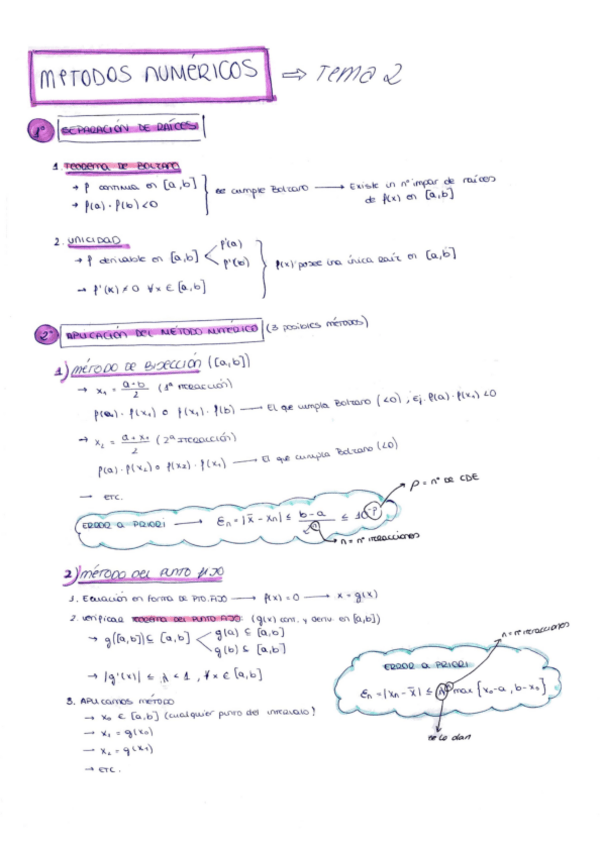 MÉTODOS NUMÉRICOS ⇒ Tema 2
1º SEPARACIÓN DE RAÍCES
1. TEOREMA DE BOLZANO
→ f continua en [a,b]
→ f(a) · f(b) < 0
se cumple Bolzano → Existe un nº impar de raíces
de f(x) en [a,b]
2. UNICIDAD
→ f derivable en [a,b] < f'(a)
f'(b)
→ f'(x) ≠ 0 ∀x ∈ [a,b]
f(x) posee una única raíz en [a,b]
2º APLICACIÓN DEL MÉTODO NUMÉRICO (3 posibles métodos)
1) MÉTODO DE BISECCIÓN ([a,b])
→ x₁ = a+b / 2 (1ª ITERACCIÓN)
f(a) · f(x₁) o f(x₁) · f(b) → El que cumpla Bolzano (<0), Ej. f(a) · f(x₁) < 0
→ x₂ = a+x₁ / 2 (2ª ITERACCIÓN)
f(a) · f(x₂) o f(x₂) · f(x₁) → El que cumpla Bolzano (<0)
→ ETC.
p = nº DE CDE
ERROR A PRIORI → εn = |x̄ - xn| ≤ b-a / 2ⁿ ≤ 10⁻ᵖ
n = nº iteracciones
2) MÉTODO DEL PUNTO FIJO
1. Ecuación en forma de PTO. FIJO → f(x) = 0 → x = g(x)
2. Verificar TEOREMA DEL PUNTO FIJO (g(x) cont. y deriv. en [a,b])
→ g([a,b]) ⊆ [a,b] < g(a) ⊆ [a,b]
g(b) ⊆ [a,b]
→ |g'(x)| ≤ λ < 1, ∀x ∈ [a,b]
n = nº iteracciones
ERROR A PRIORI
εn = |xn - x̄| ≤ λⁿ max {x₀-a, b-x₀}
se lo dan
3. APLICAMOS MÉTODO
→ x₀ ∈ [a,b] (cualquier punto del intervalo)
→ x₁ = g(x₀)
→ x₂ = g(x₁)
→ ETC.